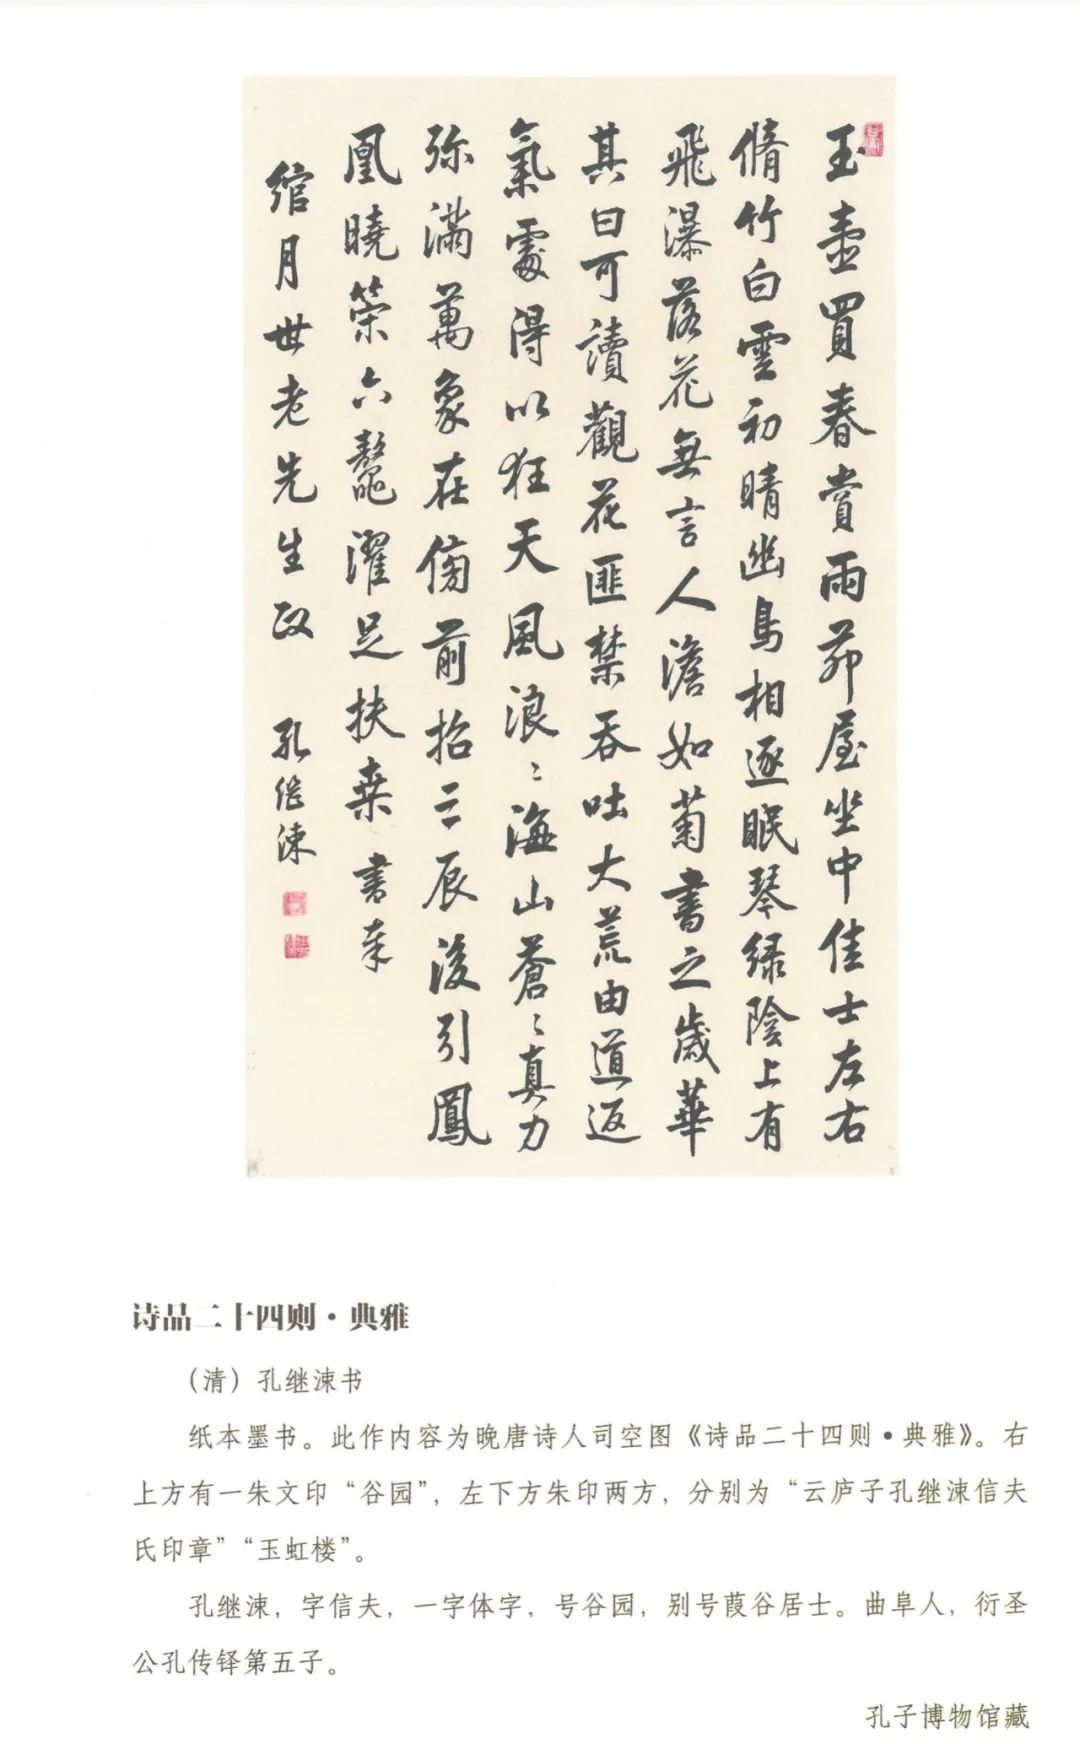 玉壷買春賞雨茆屋坐中佳士左右
脩竹白雲初晴幽鳥相逐眠琴緑陰上有
飛瀑落花無言人澹如菊書之歲華
其曰可讀觀花匪禁吞吐大荒由道返
氣處得以狂天風浪〻海山蒼〻真力
弥滿萬象在傍前招三辰後引鳳
凰曉策六鼇濯足扶桒書奉
綰月世老先生政 孔继涑
诗品二十四则·典雅
（清）孔继涑书
纸本墨书。此作内容为晚唐诗人司空图《诗品二十四则·典雅》。右
上方有一朱文印“谷园”，左下方朱印两方，分别为“云庐子孔继涑信夫
氏印章”“玉虹楼”。
孔继涑，字信夫，一字体字，号谷园，别号葭谷居士。曲阜人，衍圣
公孔传铎第五子。
孔子博物馆藏